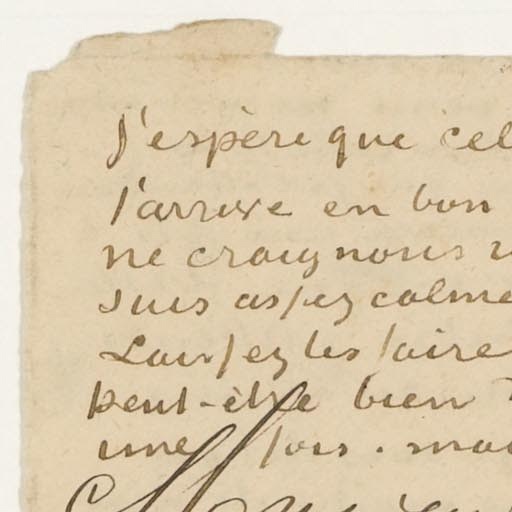 J'espère que cel
t'arrive en bon
ne craignons
suis assez calme
Laissez les faire
peut-être bien
une fois. mai